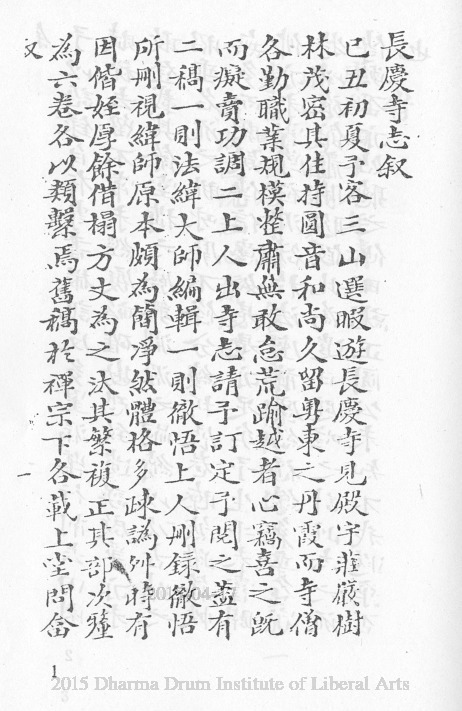 長慶寺志叙
己丑初夏予客三山選暇遊長慶寺見殿宇莊嚴樹
林茂密其住持圓音和尚久留粵東之丹霞而寺僧
各勤職業規模整肅無敢怠荒踰越者心竊喜之旣
而癡賣功調二上人出寺志請予訂定予閱之葢有
二稿一則法緯大師編輯一則徹悟上人刪錄徹悟
所刪視緯師原本頗為簡淨然體格多踈譌舛時有
因偕姪厚餘借榻方丈為之汰其繁複正其部次釐
為六卷各以類繫焉舊稿於禪宗下各載上堂問畣
叙
一
1
2015 Dharma Drum Institute of Liberal Arts